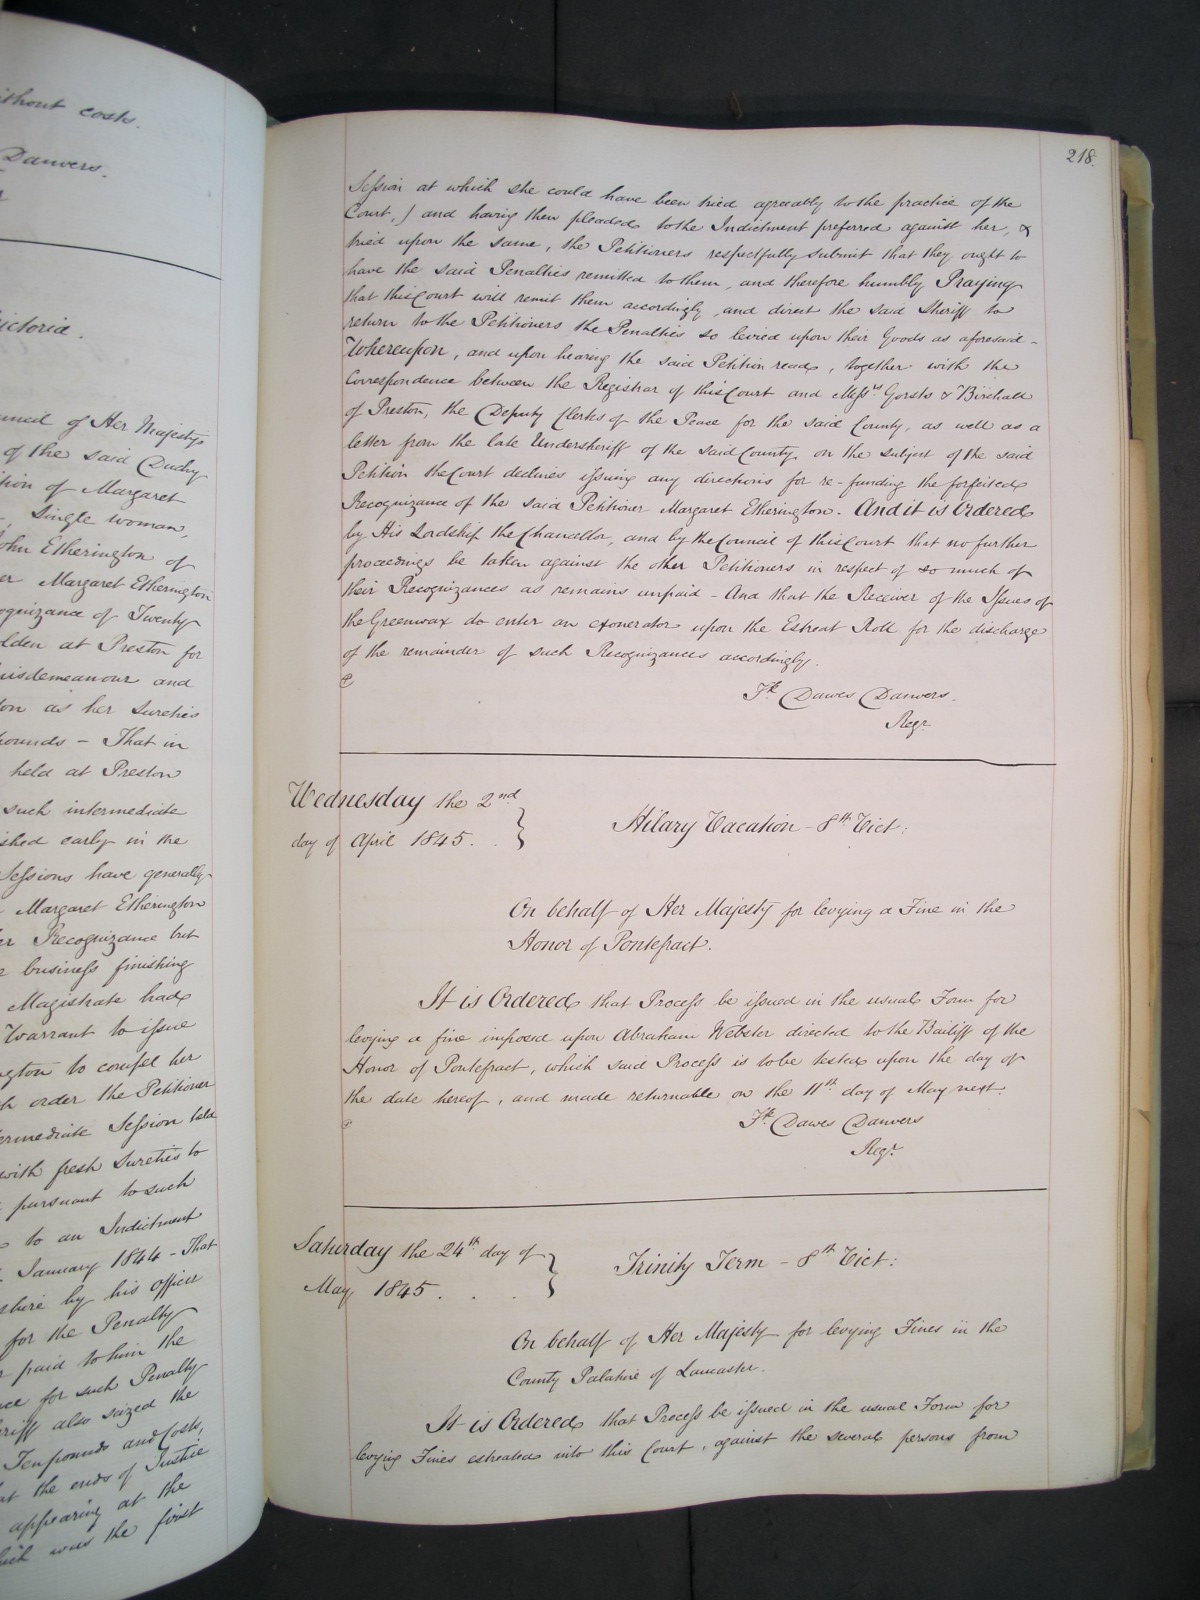 ithout costs.
Danvers.
ictoria.
uncil of Her Majesty's
of the said Duchy
tion of Margaret
, Single woman,
ohn Etherington of
er Margaret Etherington
ognizance of Twenty
lden at Preston for
isdemeanour and
on as her Sureties
ounds - That in
held at Preston
such intermediate
ished early in the
Sessions have generally
Margaret Etherington
er Recognizance but
business finishing
Magistrate had
Warrant to issue
ngton to compel her
h order the Petitioner
ermediate Session held
with fresh Sureties to
pursuant to such
to an Indictment
January 1844 - That
shire by his officer
for the Penalty
paid to him the
ce for such Penalty
riff also seized the
Ten pounds and Costs,
at the ends of Justice
appearing at the
hich was the first
218.
Session at which she could have been tried agreeably to the practice of the
Court,) and having then pleaded to the Indictment preferred against her, &
tried upon the same, the Petitioners respectfully submit that they ought to
have the said Penalties remitted to them, and therefore humbly Praying
that this Court will remit them accordingly, and direct the said Sheriff to
return to the Petitioners the Penalties so levied upon their Goods as aforesaid -
Whereupon, and upon hearing the said Petition read, together with the
Correspondence between the Registrar of this Court and Messrs Gorsts & Birchall
of Preston, the Deputy Clerks of the Peace for the said County, as well as a
letter from the late Undersheriff of the said County on the subject of the said
Petition the Court declines issuing any directions for re-funding the forfeited
Recognizance of the said Petitioner Margaret Etherington. And it is Ordered
by His Lordship the Chancellor, and by the Council of this Court that no further
proceedings be taken against the other Petitioners in respect of so much of
their Recognizances as remains unpaid - And that the Receiver of the Issues of
the Greenwax do enter an exonerator upon the Estreat Roll for the discharge
of the remainder of such Recognizances accordingly.
Fk Dawes Danvers.
Regr.
Wednesday the 2nd
day of April 1845. .
Hilary Vacation - 8th Vict:
On behalf of Her Majesty for levying a Fine in the
Honor of Pontefract.
It is Ordered that Process be issued in the usual Form for
levying a fine imposed upon Abraham Webster directed to the Bailiff of the
Honor of Pontefract, which said Process is to be tested upon the day of
the date hereof, and made returnable on the 11th day of May next.
Fk Dawes Danvers
Regr.
Saturday the 24th day of
May 1845. . .
Trinity Term - 8th Vict:
On behalf of Her Majesty for levying Fines in the
County Palatine of Lancaster.
It is Ordered that Process be issued in the usual Form for
levying Fines estreated into this Court, against the several persons from